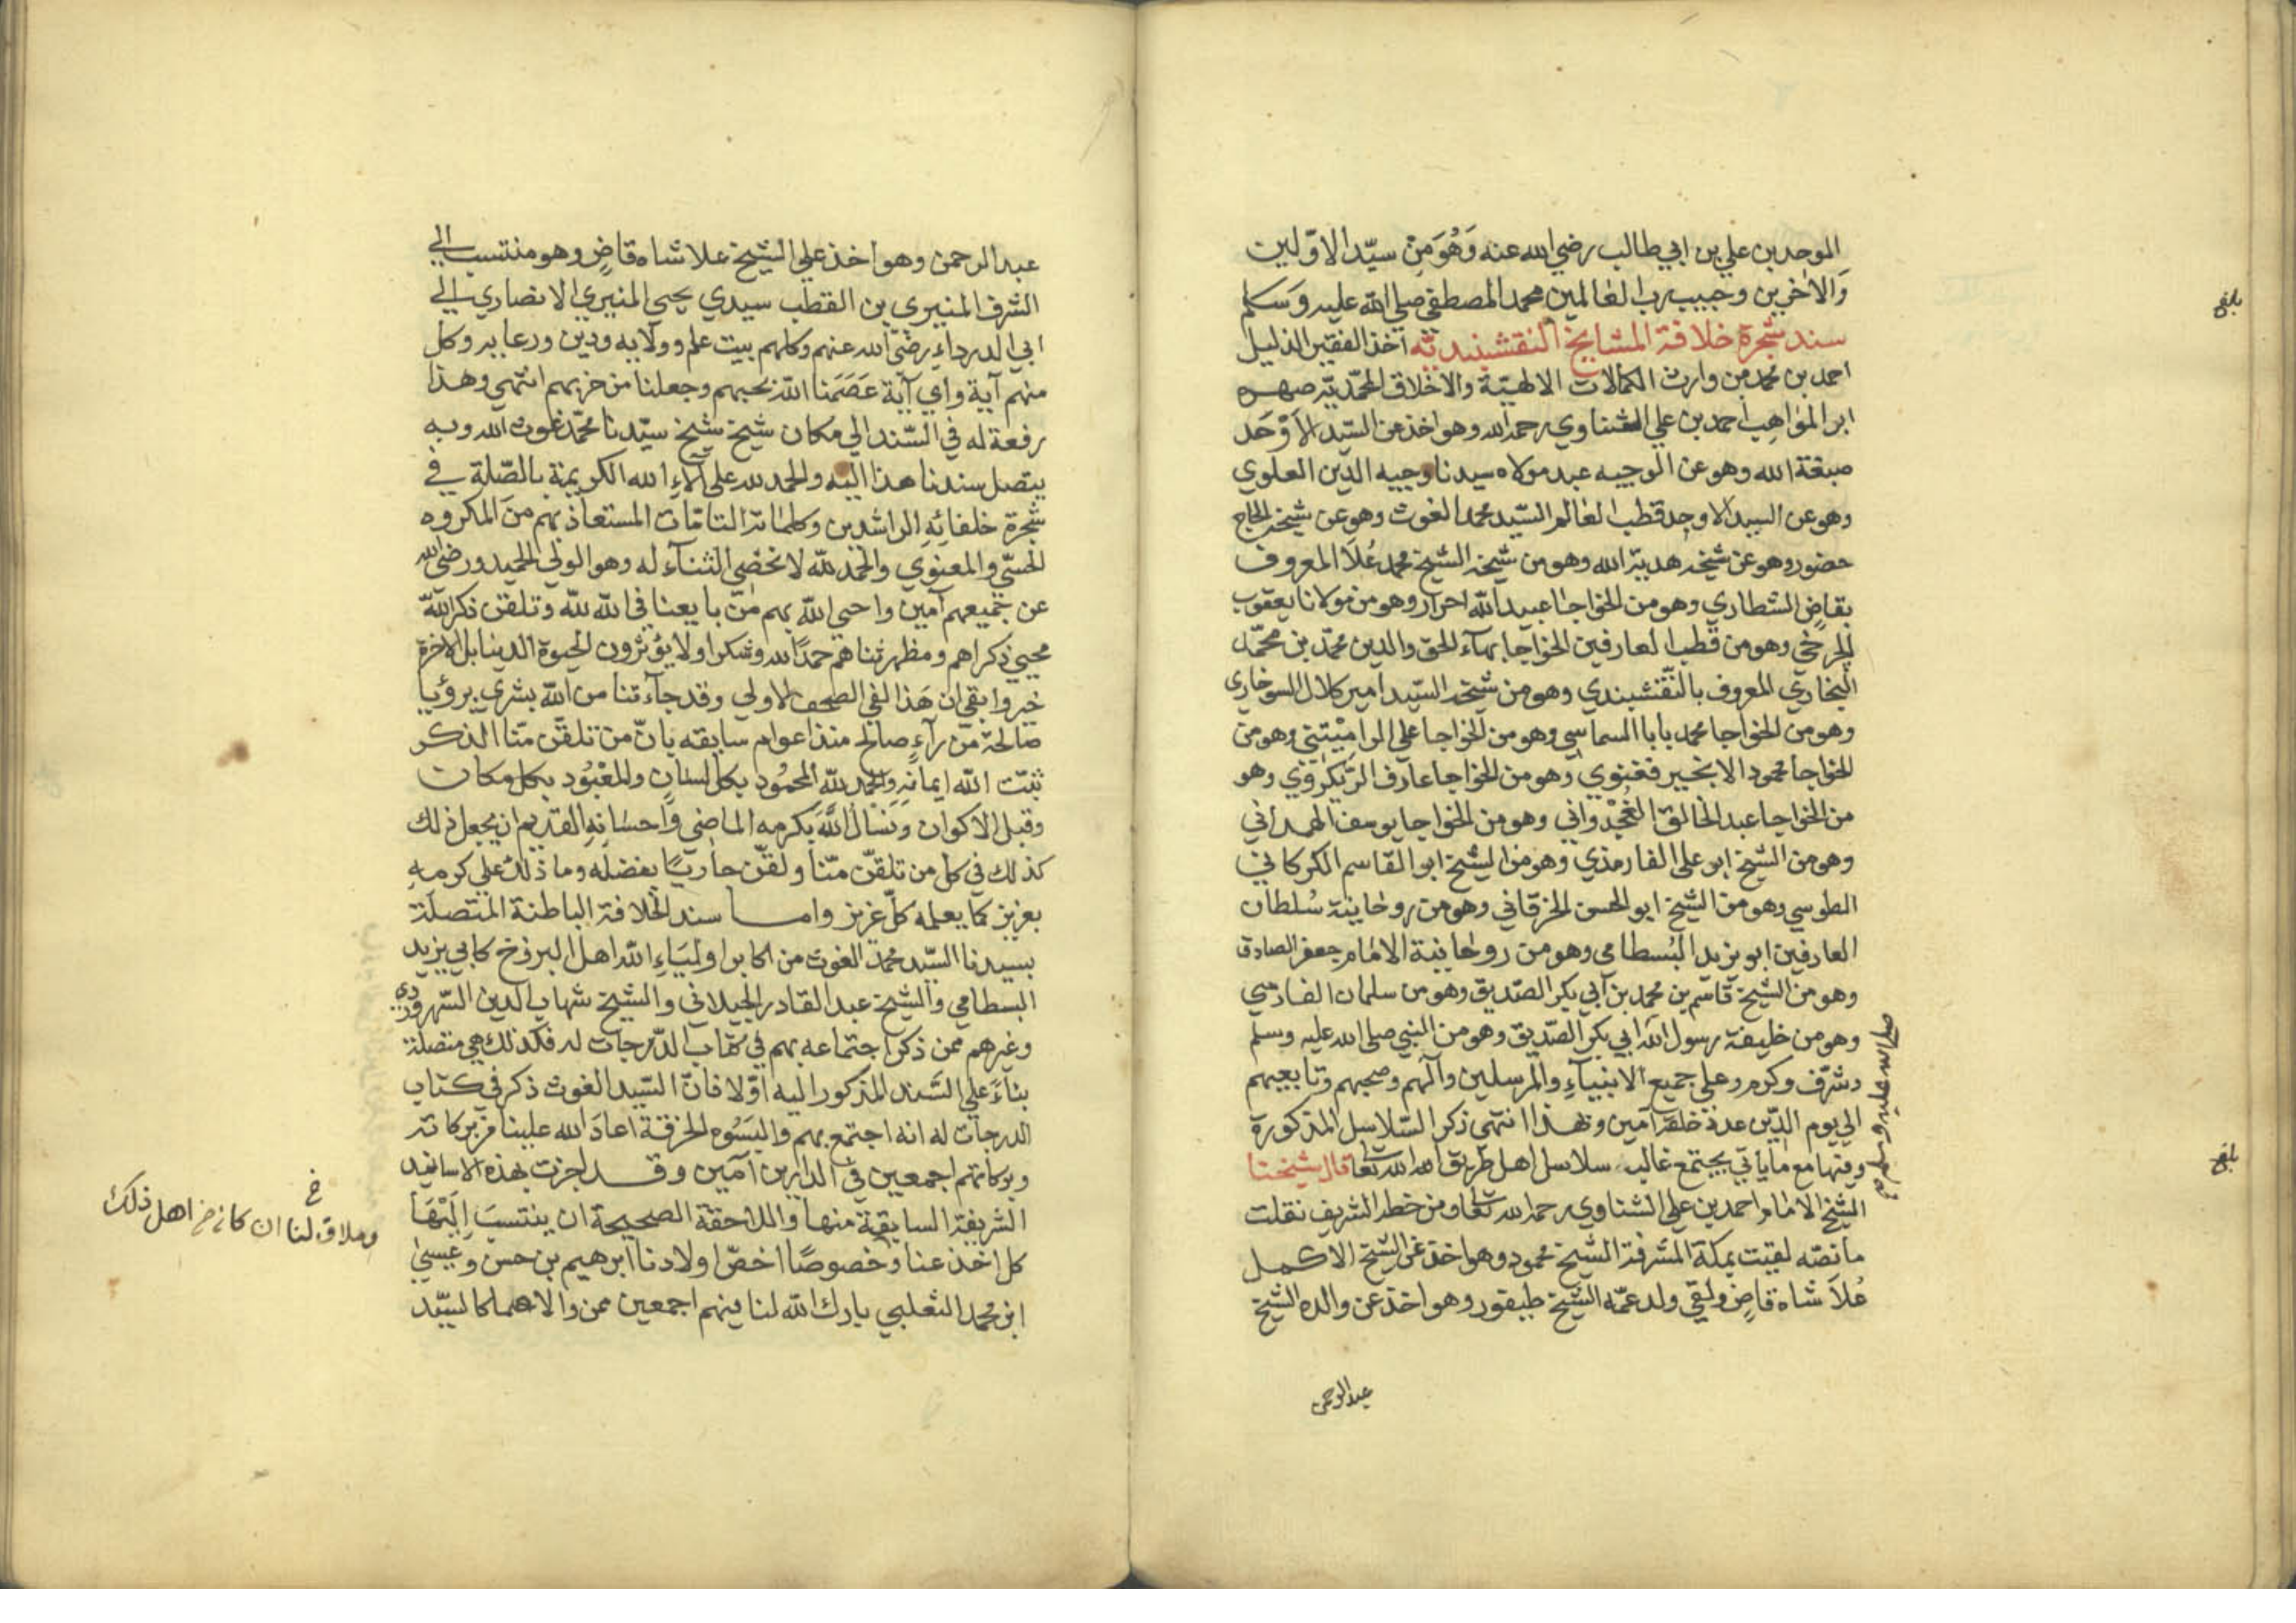 الموحدين علي بن ابي طالب رضي الله عنه وَهُوَ مِنْ سيّد الاوّلين
وَالاخرين وحبيب رب العالمين محمد المصطفى صلي الله عليه وَسَلم
سند شجرة خلافة المشايخ النقشبنديّه اخذ الفقير الذليل
احمد بن محمد من وارث الكمالات الالهيّة والاخلاق المحمّديّه صهره
ابو المواهب احمد بن علي الشناوي رحمه الله وهو اخذ من السّيد الاَوْحَد
صبغة الله وهو عن الوجيه عبد مولاه سيدنا وجيه الدين العلوي
وهو عن السيد الاوحد قطب العالم السّيد محمد الغوث وهو عن شيخه الحاج
حضور وهو عن شيخه هدية الله وهو من شيخه الشيخ محمد عُلاَ المعروف
بقاضٍ الشطاري وهو من الخواجا عبيد الله احرار وهو من مولانا يعقوب
الجرخي وهو من قطب العارفين الخواجا بهآء الحق والدين محمّد بن محمّد
البخاري المعروف بالنقشبندي وهو من شيخه السّيد امير كلال السوخاري
وهو من الخواجا محمد بابا السماسي وهو من الخواجا علي الرامِيْتني وهو من
الخواجا محمود الانجير فغنوي وهو من الخواجا عارف الرّيْكَرَوي وهو
من الخواجا عبد الخالق الغُجْدواني وهو من الخواجا يوسف الهمداني
وهو من الشيخ ابو علي الفارمذي وهو من الشيخ ابو القاسم الكركاني
الطوسي وهو من الشيخ ابو الحسن الخرقاني وهو من روحانية سُلطان
العارفين ابو يزيد البُسطامي وهو من روحانية الامام جعفر الصادق
وهو من الشيخ قاسم بن محمد بن ابي بكر الصّديق وهو من سلمان الفارسي
وهو من خليفة رسول الله ابي بكر الصّديق وهو من النبي صلي الله عليه وسلم
وشرّف وكرم وعلي جميع الانبيآءِ والمرسلين وآلهم وصحبهم وتابعيهم
الي يوم الدّين عدد خلقه آمين وبهذا انتهي ذكر السّلاسل المذكورة
صلي الله عليه وسلم
ومنها مع ما ياتي يجتمع غالب سلاسل اهل طريق الله تعا قال شيخنا
الشيخ الامام احمد بن علي الشناوي رحمه الله تعا ومن خطه الشريف نقلت
ما نصّه لقيت بمكة المشرفة الشيخ محمود وهو اخذ عن الشيخ الاكمل
عُلاَ شاه قاضٍ ولقي ولد عمّه الشيخ طيفور وهو اخذ عن والده الشيخ
عبد الرحمن
بلغ
بلغ
عبد الرحمن وهو اخذ علي الشيخ علا شاه قاضٍ وهو منتسب الي
الشرف المنيري بن القطب سيدي يحيي المنيري الانصاري الي
ابي الدرداءِ رضي الله عنهم وكلهم بيت علم وولايه ودين ورعايه وكل
منهم آية واي آية عَصَمَنا الله بحبهم وجعلنا من حزبهم انتهي وهذا
رفعة له في السّند الي مكان شيخ شيخ سيّدنا محمّد غوث الله وبه
يتصل سندنا هذا اليه والحمد لله علي آلاءِ الله الكريمة بالصّلة في
شجرة خلفائه الراشدين وكلماته التامّات المستعاذ بهم منَ المكروه
الحسّي والمعنوي والحمد للّه لا نحصي الثنآء له وهو الولي الحميد ورضي الله
عن جميعهم آمين واحيي اللّه بهم منّ بايعنا في اللّه للّه وتلقن ذكر اللّه
محيي ذكراهم ومظهر ثناهم حمدًا لله وشكرا ولا يؤثرون الحيوة الدينا بل الاخرة
خير وابقي ان هَذا لفي الصحف الاولي وقد جآءتنا من اللّه بشري برؤيا
صالحة من رآءٍ صالح منذ اعوام سابقه بانّ من تلقن منّا الذكر
ثبّت اللّه ايمانه والحمد للّه المحمُود بكل لسان والمعْبُود بكل مكان
وقبل الاكوان وَنَسْال اللَّهَ بكرمه الماضي وَاحسَانِهِ القديم ان يجعل ذلك
كذلك في كل من تلقّن منّا ولقّن جاريًا بفضله وما ذلك علي كرمه
بعزيز كما يعلمه كلّ عزيز وامـا سند الخلافة الباطنة المتصلة
بسيدنا السّيد محمد الغوث من اكابر اوليَاءِ الله اهل البرزخ كابي يزيد
البسطامي والشيخ عبد القادر الجيلاني والشيخ شهاب الدين السّهروردي
وغيرهم ممن ذكر اجتماعه بهم في كتاب الدّرجات له فكذلك هي متصلة
بناءً علي السَّند المذكور اليه اوّلا فانّ السّيد الغوث ذكر في كتاب
الدرجات له انه اجتمع بهم والبَسُوه الخرقة اعادَ الله علينا من بركاته
وبركاتهم اجمعين في الدارين آمين وقـد اجزت بهذه الاسانيد
الشريفة السابقة منها واللاحقة الصحيحة ان ينتسبَ اِلَيْهَا
كل اخذ عنا وخصوصًا اخصّ اولادنا ابرهيم بن حسن وعيسيٰ
ابن محمد الثعلبي بارك اللّه لنا فيهم اجمعين ممن والاهما كالسيّد
خ
وملاق لنا ان كان من اهل ذلك